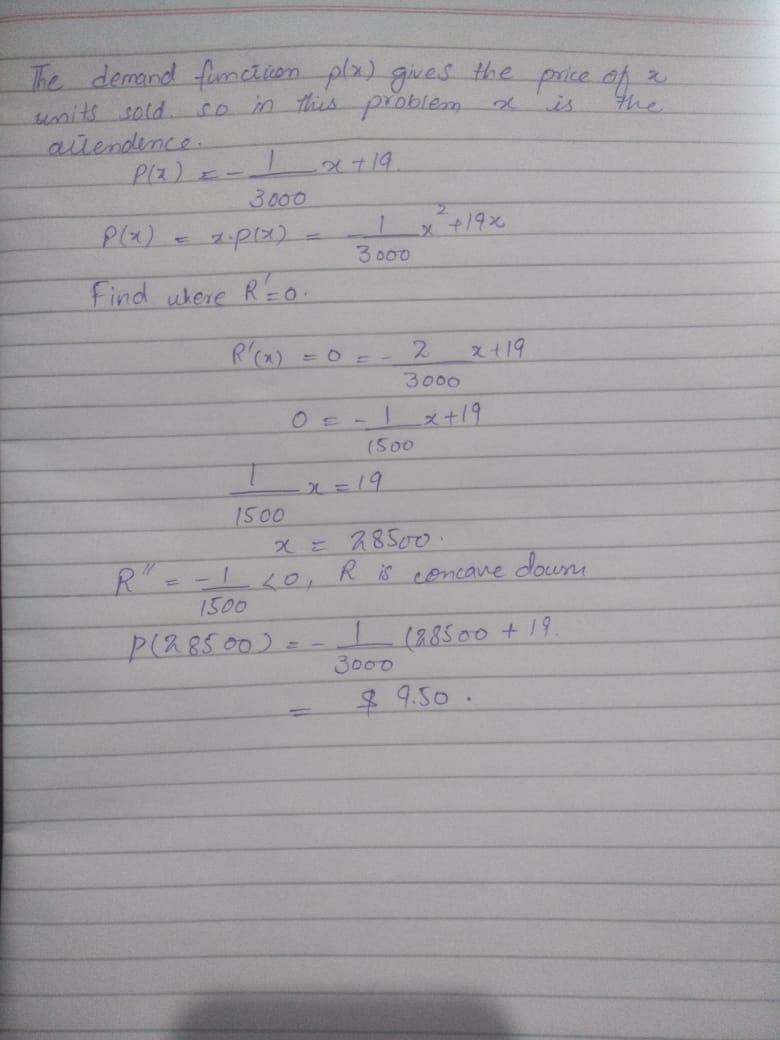 The demand function p(x) gives the price of x
units sold. so in this problem x is the
attendence.
P(x) = - 1/3000 x + 19.
P(x) = x·p(x) = 1/3000 x² + 19x
Find where R' = 0.
R'(x) = 0 = - 2/3000 x + 19
0 = - 1/1500 x + 19
1/1500 x = 19
x = 28500.
R" = - 1/1500 < 0, R is concave down
P(28500) = - 1/3000 (28500 + 19.
= $ 9.50.